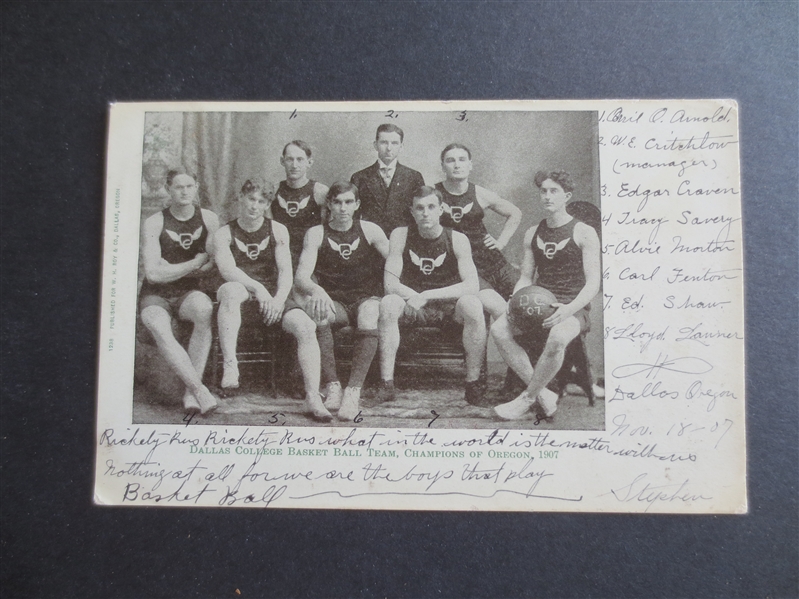 1. 2. 3.
1. Emil O. Arnold.
2 W. E. Critchlow
(manager)
3 Edgar Craven
4 Tracy Savery
5 Alvie Morton
6 Carl Fenton
7 Ed. Shaw.
8 Lloyd Launer
Dallas Oregon
Nov. 18-07
DC
DC
DC
DC
DC
DC
DC
D.C.
07
4 5 6 7 8
Rickety Rus Rickety Rus what in the world is the matter with us
DALLAS COLLEGE BASKET BALL TEAM, CHAMPIONS OF OREGON, 1907
Nothing at all for we are the boys that play
Basket Ball
Stephen